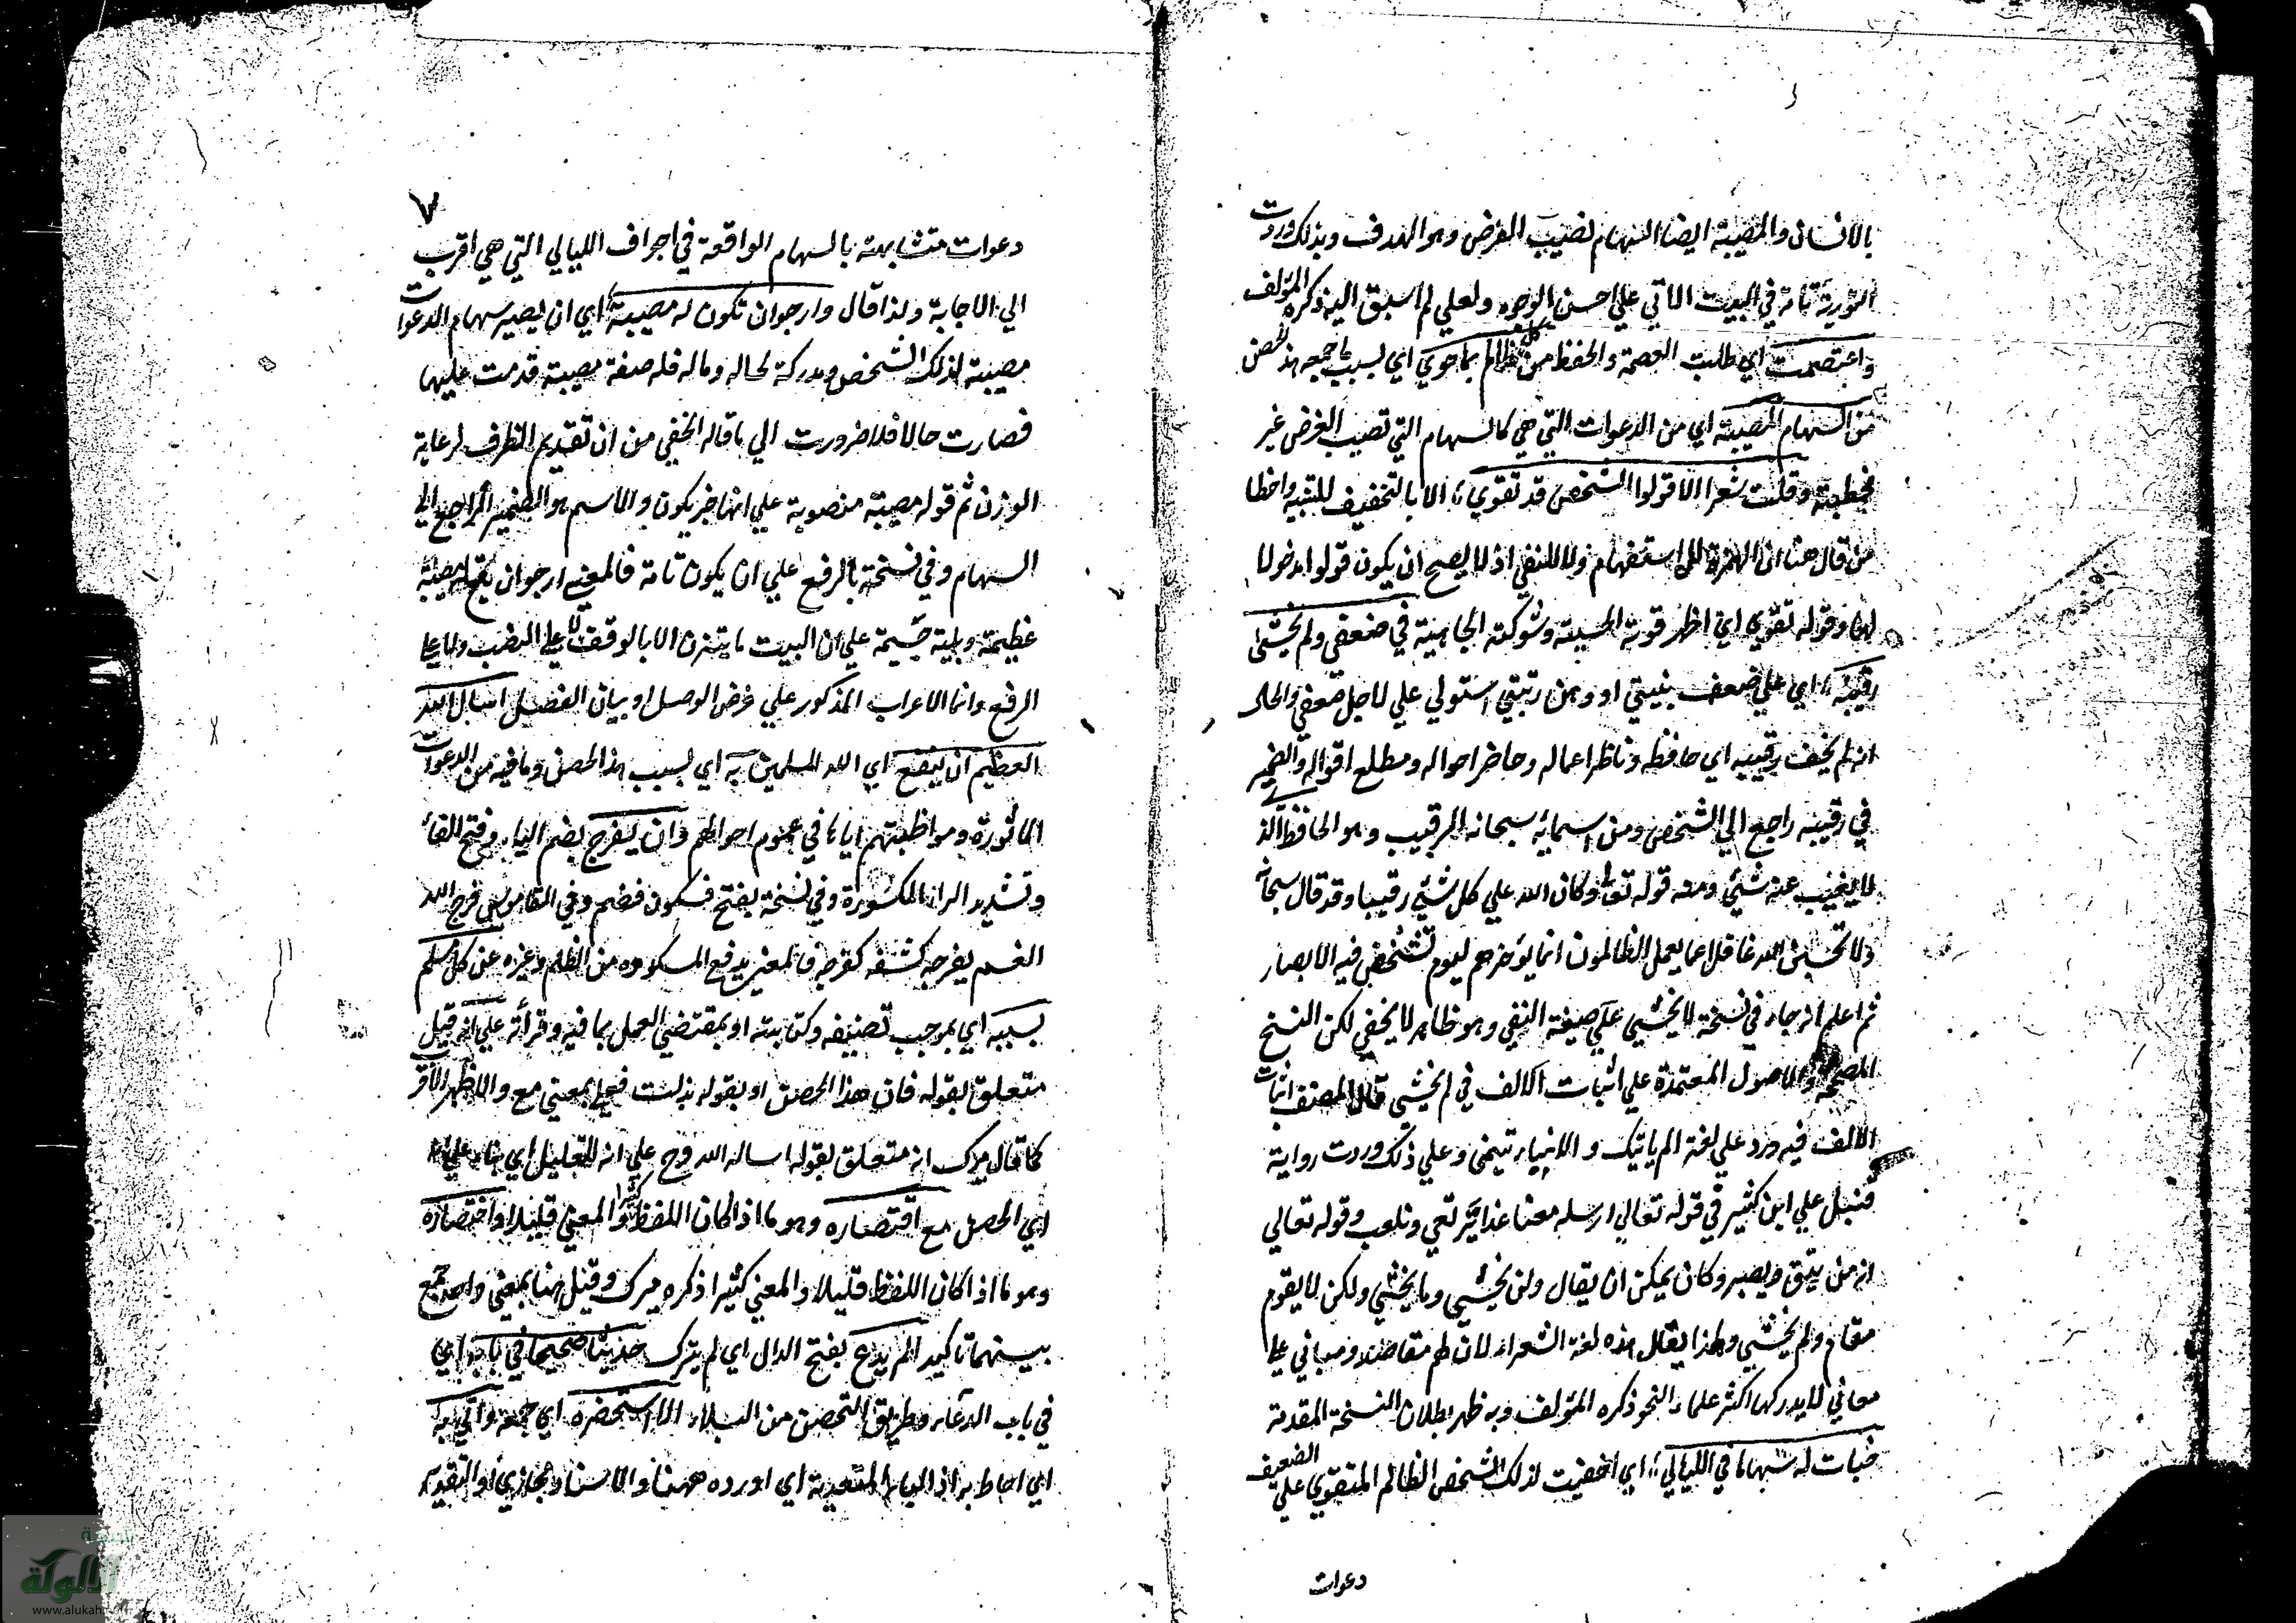 بالانسان والمصيبة ايضا السهام تصيب الغرض وهو الهدف وبذلك وردت
التورية تامة في البيت الاتي علي احسن الوجوه ولعلي لم اسبق اليه ذكره المؤلف
واعتصمت اي طلبت العصمة والحفظ من كل ظالم بما حوي اي بسبب ما جمعه هذا الحصن
من السهام المصيبة اي من الدعوات التي هي كالسهام التي تصيب الغرض غير
مخطية وقلت شعرا الا قولوا لشخص قد تقوي الا بالتخفيف للتنبيه واخطا
من قال هنا ان الهمزة للاستفهام ولا للنفي اذ لا يصح ان يكون قولوا مدخولا
لها وقوله تقوي اي اظهر قوته الحسية وشوكته الجاهية في ضعفي ولم يخشي
رقيبه اي علي ضعف بنيتي او وهن رتبتي استولي علي لاجل ضعفي والحال
انه لم يخف رقيبه اي حافظه وناظر اعماله وحاضر احواله ومطلع اقواله والضمير
في رقيبه راجع الي الشخص ومن اسمايه سبحانه الرقيب وهو الحافظ الذي
لا يغيب عنه شيء ومنه قوله تعالي وكان الله علي كل شيء رقيبا وقد قال سبحانه
ولا تحسبن الله غافلا عما يعمل الظالمون انما يؤخرهم ليوم تشخص فيه الابصار
ثم اعلم انه جاء في نسخة لا يخشي علي صيغة النفي وهو ظاهر لا يخفي لكن النسخ
المصححة والاصول المعتمدة علي اثبات الالف في لم يخشي قال المصنف اثبات
الالف فيه ورد علي لغة الم ياتيك والانباء تنمي وعلي ذلك وردت رواية
قنبل علي ابن كثير في قوله تعالي ارسله معنا غدا يرتعي ونلعب وقوله تعالي
انه من يتق ويصبر وكان يمكن ان يقال ولن يخشي وما يخشي ولكن لا يقوم
مقام ولم يخشي ولهذا يقال هذه لغة الشعراء لان لهم مقاصد ومباني علي
معاني لا يدركها اكثر علماء النحو ذكره المؤلف وبه ظهر بطلان النسخة المقدمة
خبات له سهاما في الليالي اي اخفيت لذلك الشخص الظالم المتقوي علي الضعيف
دعوات
٧
دعوات متشابهة بالسهام الواقعة في اجواف الليالي التي هي اقرب
الي الاجابة ولذا قال وارجوان تكون له مصيبة اي ان يصير سهام الدعوات
مصيبة لذلك الشخص ومدركة لحاله وماله فله صفة مصيبة قدمت عليها
فصارت حالا فلا ضرورت الي ما قاله الحنفي من ان تقديم الظرف لرعاية
الوزن ثم قوله مصيبة منصوبة علي انها خبر يكون والاسم هو الضمير الراجع الي
السهام وفي نسخة بالرفع علي ان يكون تامة فالمعني ارجوان يقع له مصيبة
عظيمة وبلية جسيمة علي ان البيت ما يتزن الا بالوقف لا علي النصب ولا علي
الرفع وانما الاعراب المذكور علي غرض الوصل او بيان الفصل اسال الله
العظيم ان ينفع اي الله المسلمين به اي بسبب هذا الحصن وما فيه من الدعوات
الماثورة ومواظبتهم اياها في عموم احوالهم وان يفرج بضم الياء وفتح الفاء
وتشديد الراء المكسورة وفي نسخة بفتح فسكون فضم وفي القاموس فرج الله
الغم يفرجه كشفه كفرجه فالمعني يدفع المكروه من الظلم وغيره عن كل مسلم
بسببه اي بموجب تصنيفه وكتابته او بمقتضي العمل بما فيه وقرأته علي انه قيل
متعلق بقوله فان هذا الحصن او بقوله بذلت فعلي بمعني مع والاظهر الاقرب
كما قال ميرك انه متعلق بقوله اساله الله وح علي انه للتعليل اي بناء علي انه
اي الحصن مع اقتصاره وهو ما اذا كان اللفظ كثيرا والمعني قليلا واختصاره
وهو ما اذا كان اللفظ قليلا والمعني كثيرا ذكره ميرك وقيل هنا بمعني واحد جمع
بينهما تاكيد الم يدع بفتح الدال اي لم يترك حديثا صحيحا في بابه اي
في باب الدعاء وطريق التحصن من البلاء الا استحضره اي جمعه واتي به
اي احاط به اذ الباء للتعدية اي اورده ههنا والاسناد مجازي او التقدير